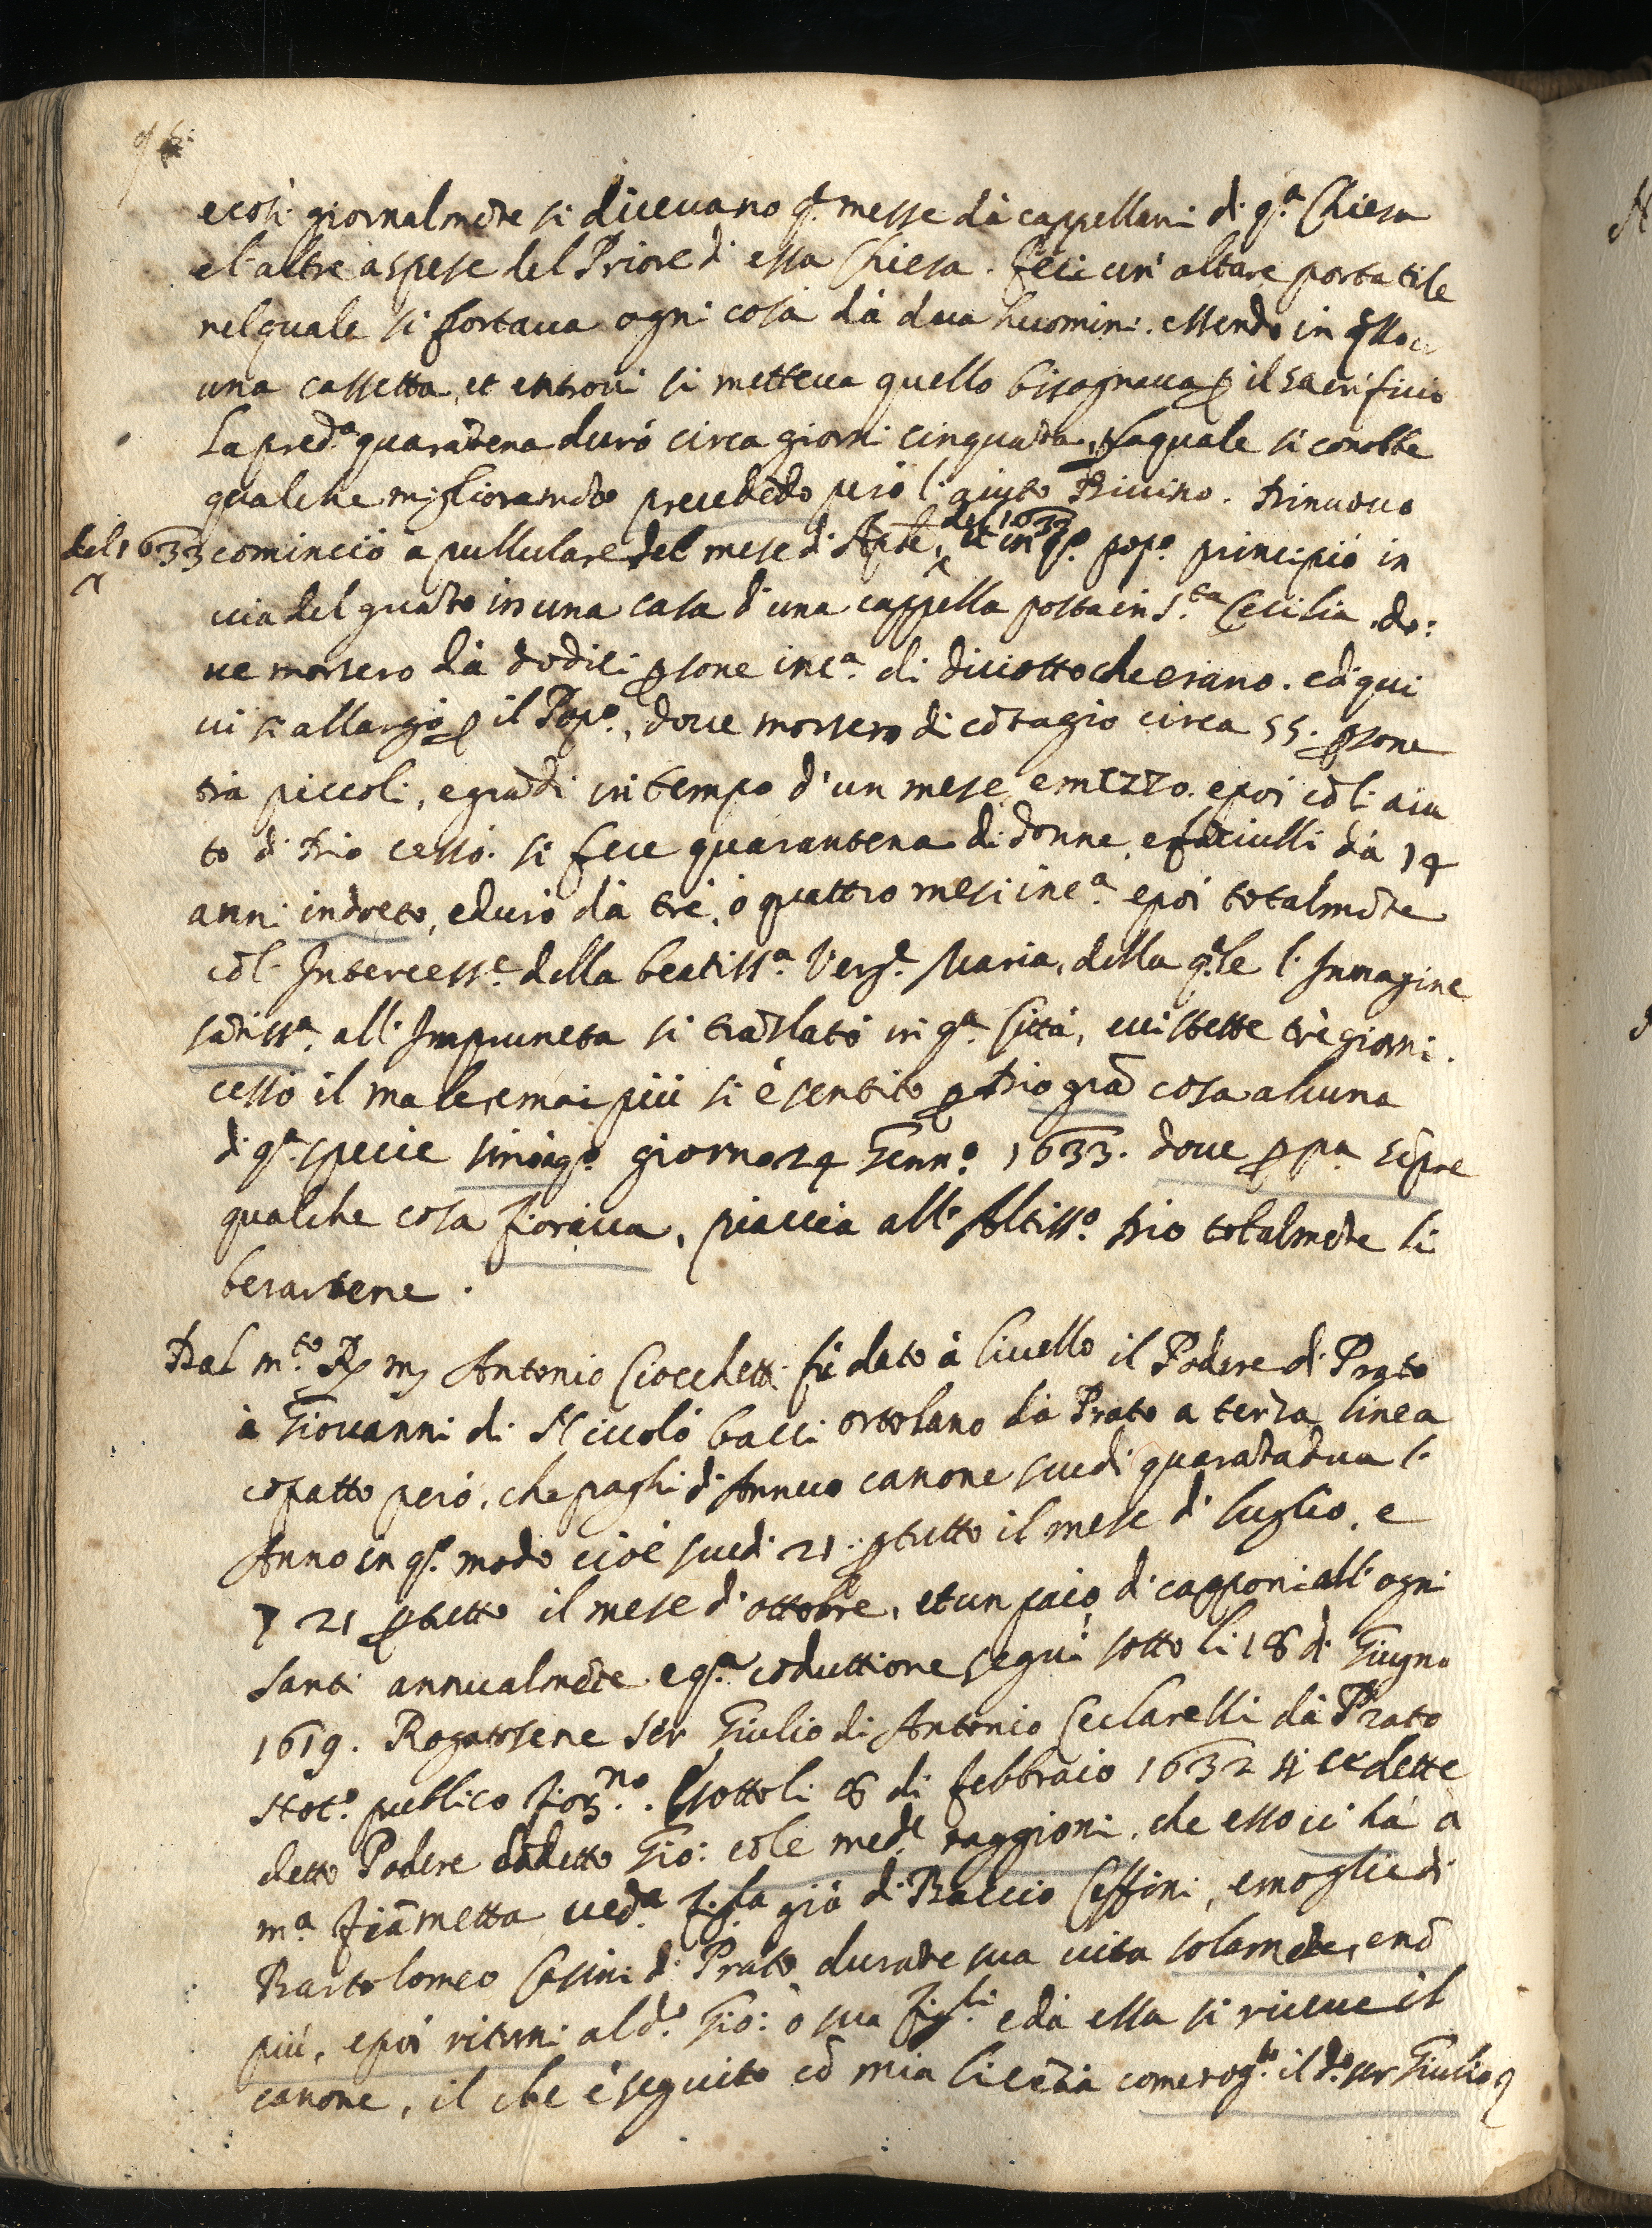 e così giornalmẽte si diceuano q.e messe dà cappellani di q.a Chiesa
e l'altre à spese del Priore di essa Chiesa. feci un' altare portatile
nel quale si portaua ogni cosa dà dua huomini. essendo in q̃llo
una cassetta, et entroui si metteua quello bisognaua p il sacrificio
La pred.a quarãtena durò circa giorni cinquãta, p la quale si conobbe
qualche miglioramẽto precedẽdo però l'aiuto Diuino. Di nuouo
del 1633 cominciò a pullulare del mese di Aprile, del 1633 et in q.o pop.o principiò in
uia del guãto in una casa d'una cappella posta in S.ta Cecilia, do:
ue morsero dà dodici psone inc.a di diciotto che erano. e di qui
ui si allargò p il Pop.o, doue morsero di cõtagio circa 55. psone
trà piccoli, e grãdi in tempo d'un mese, e mezzo. e poi cõ l'aiu
to di Dio cessò. si fece quarantena di donne, e fãciulli dà 14
anni indreto, e durò dà trè, ò quattro mesi inc.a e poi totalmẽte
cõ l'Intercess.e della beatiss.a Verg.e Maria, della q.le l'Immagine
sãtiss.a all'Impruneta si traslatò in q.a Città, e ui stette trè giorni.
cessò il male, e mai più si è sentito p Dio grã cosa alcuna
di q.a specie sino à q.o giorno 24 Genn.o 1633. doue p p.a sẽpre
qualche cosa fioriua, piaccia all'Altiss.o Dio totalmẽte li
berartene.
Dal m.to R. m. Antonio Ciocchetti fù dato à liuello il Podere di Prato
à Giouanni di Niccolò bacci ortolano dà Prato a terza linea
cõ patto però, che paghi di Annuo canone scudi quarãtadua l'
Anno in q.o modo cioè scudi 21. p tutto il mese di luglio, e
21 p tutto il mese d'ottobre, et un paio di capponi all'ogni
santi annualmẽte e q.a cõduttione seguì sotto li 18 di Giugno
1619. Rogatosene ser Giulio di Antonio Ceclarelli dà Prato
Not.o publico fior.no. sotto li 8 di febbraio 1632 si cedette
detto Podere dal detto Gio: cõ le med.e raggioni, che esso ci hà à
m.a Fiãmetta ued.a figla già di Baccio Ceffini, e moglie di
Bartolomeo Casini di Prato durãte sua uita solamẽte, e nõ
più, e poi ritorni al d.o Gio: ò sua figli. e dà essa si riceue il
canone, il che è seguito cõ mia licẽza come rog.to il d.o ser Giulio